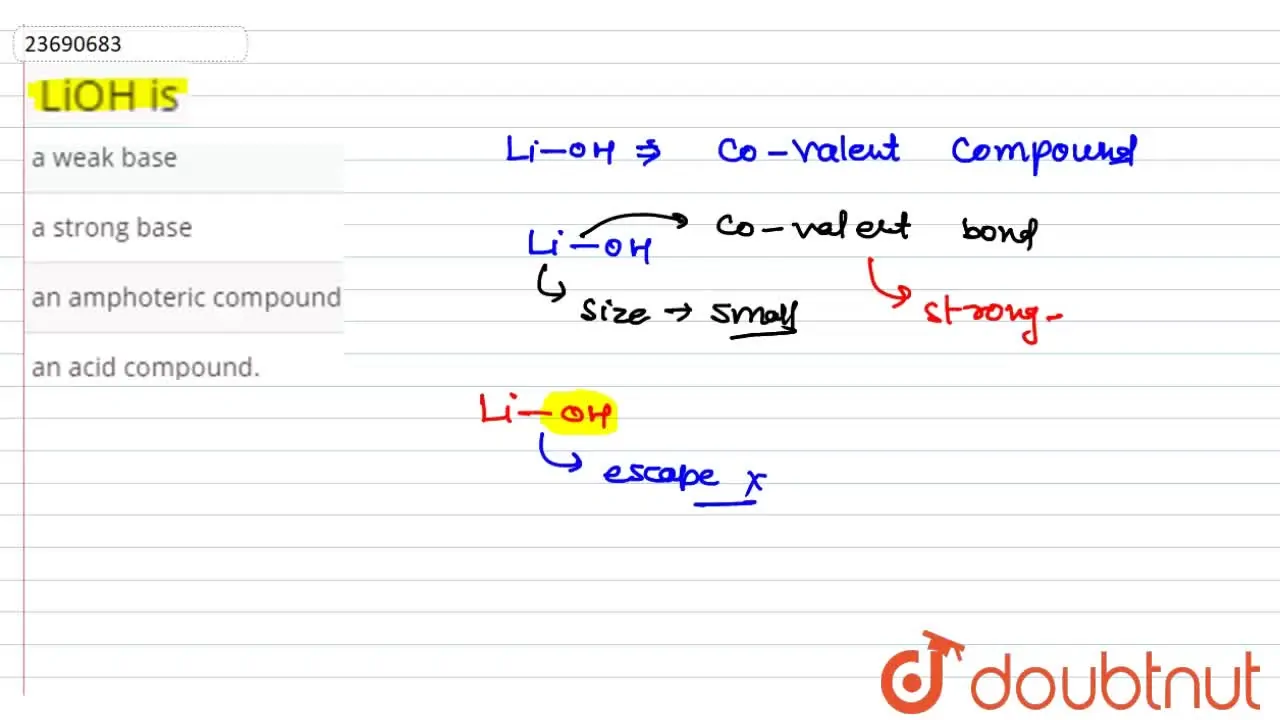 23690683
LiOH is
a weak base
a strong base
an amphoteric compound
an acid compound.
Li-OH ⇒ Co-valent Compound
Li-OH Co-valent bond
Size → small strong-
Li-OH
escape x
doubtnut